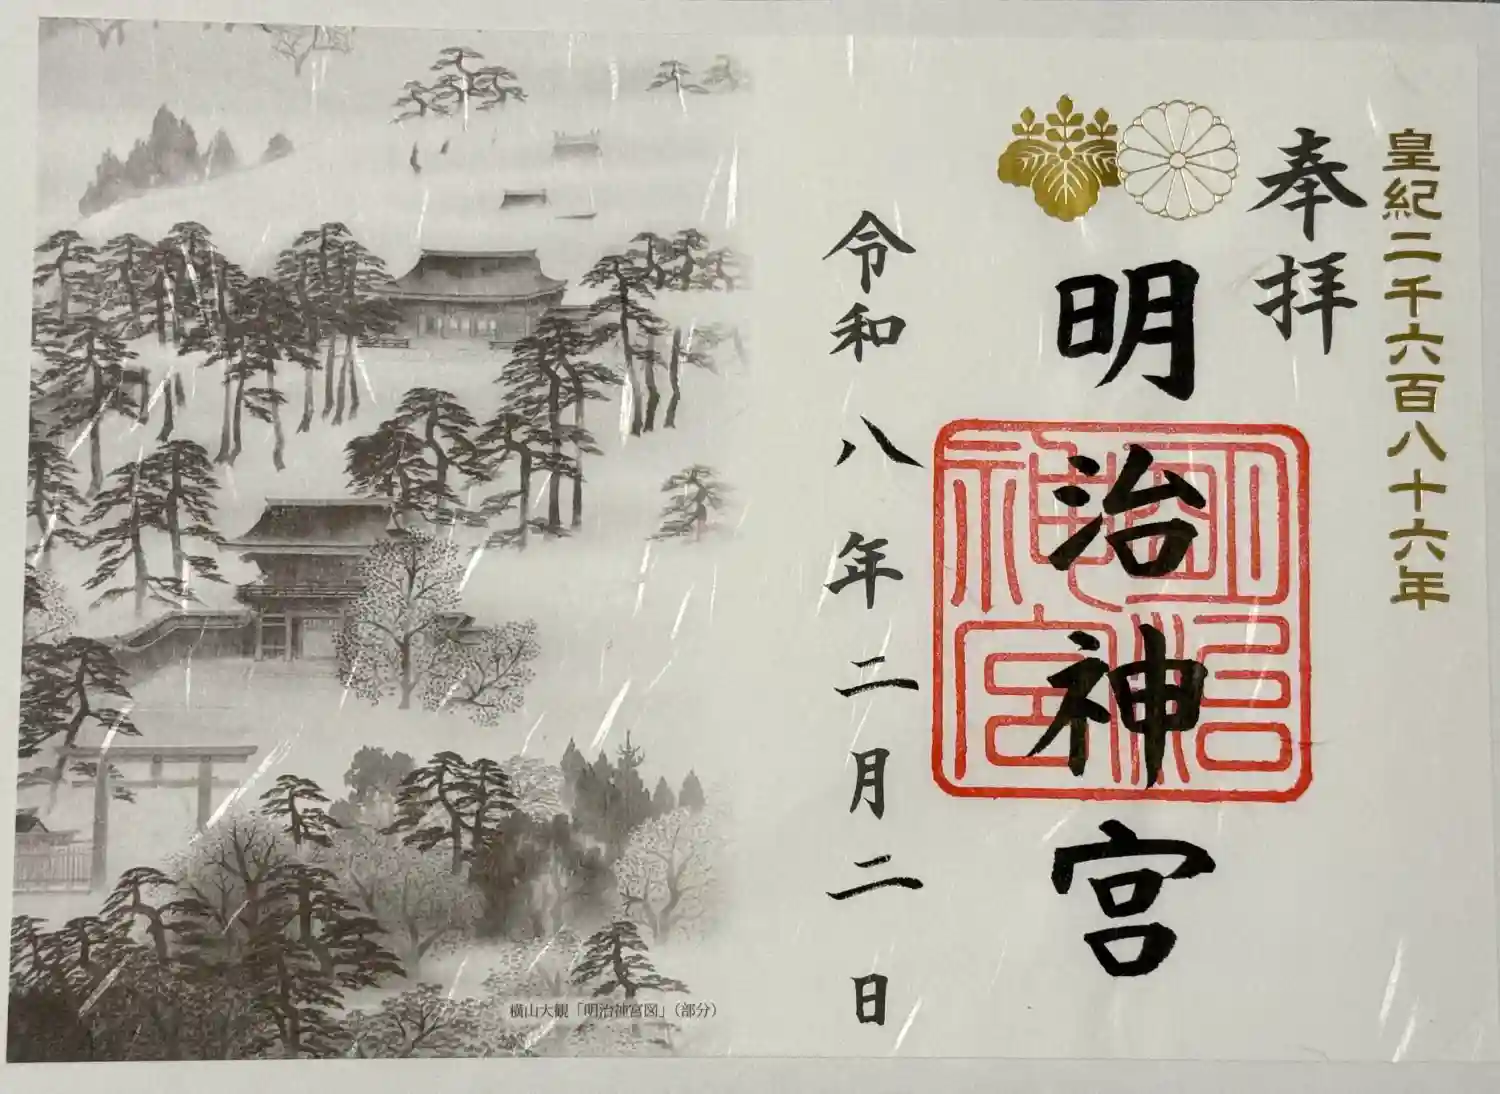 皇紀二千六百八十六年
奉拝
明治神宮
明治神宮
令和八年二月二日
横山大観「明治神宮図」（部分）